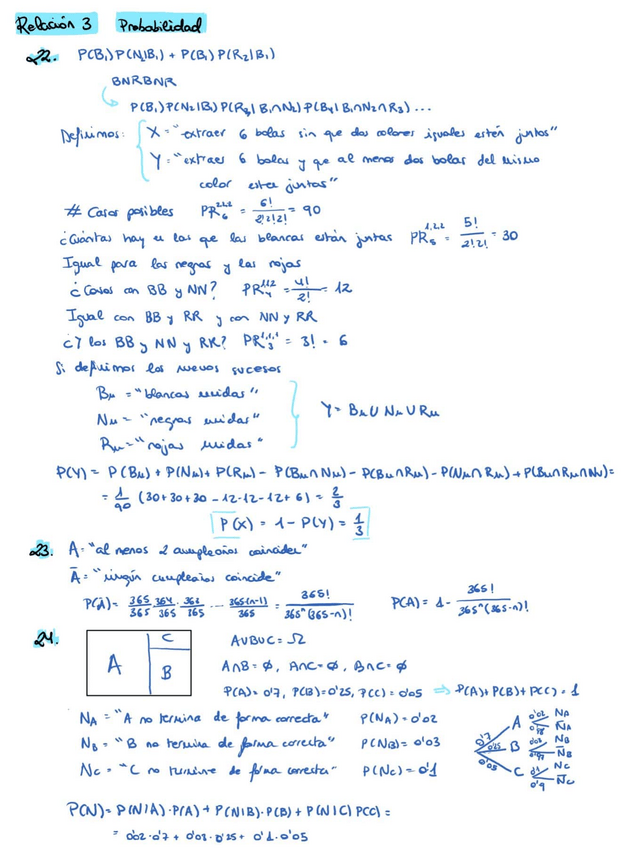 Relación 3 Probabilidad
22. P(B₁)P(N₂|B₁) + P(B₁)P(R₂|B₁)
BNRBNR
P(B₁)P(N₂|B₁)P(R₃|B₁∩N₂)P(B₄|B₁∩N₂∩R₃)...
Definimos: X = "extraer 6 bolas sin que dos colores iguales estén juntos"
Y = "extraer 6 bolas y que al menos dos bolas del mismo
color estén juntas"
# Casos posibles PR₆^{2,2,2} = 6!/(2!2!2!) = 90
¿Cuántas hay en las que las blancas están juntas PR₅^{1,2,2} = 5!/(2!2!) = 30
Igual para las negras y las rojas
¿Casos con BB y NN? PR₄^{1,1,2} = 4!/2! = 12
Igual con BB y RR y con NN y RR
¿Y los BB y NN y RR? PR₃^{1,1,1} = 3! = 6
Si definimos los nuevos sucesos
Bu = "blancas unidas"
Nu = "negras unidas"
Ru = "rojas unidas"
Y = Bu ∪ Nu ∪ Ru
P(Y) = P(Bu) + P(Nu) + P(Ru) - P(Bu∩Nu) - P(Bu∩Ru) - P(Nu∩Ru) + P(Bu∩Ru∩Nu) =
= 1/90 (30+30+30-12-12-12+6) = 2/3
P(X) = 1 - P(Y) = 1/3
23. A = "al menos 2 cumpleaños coinciden"
Ā = "ningún cumpleaños coincide"
P(Ā) = 365/365 · 364/365 · 363/365 ... 365-(n-1)/365 = 365!/(365ⁿ(365-n)!) P(A) = 1 - 365!/(365ⁿ(365-n)!)
24. A B C A∪B∪C = Ω
A∩B = ∅, A∩C = ∅, B∩C = ∅
P(A) = 0'7, P(B) = 0'25, P(C) = 0'05 ⇒ P(A)+P(B)+P(C) = 1
N_A = "A no termina de forma correcta" P(N_A) = 0'02
N_B = "B no termina de forma correcta" P(N_B) = 0'03
N_C = "C no termina de forma correcta" P(N_C) = 0'1
0'7 A 0'02 N_A 0'98 N̄_A
0'25 B 0'03 N_B 0'97 N̄_B
0'05 C 0'1 N_C 0'9 N̄_C
P(N) = P(N|A)·P(A) + P(N|B)·P(B) + P(N|C)P(C) =
= 0'02·0'7 + 0'03·0'25 + 0'1·0'05